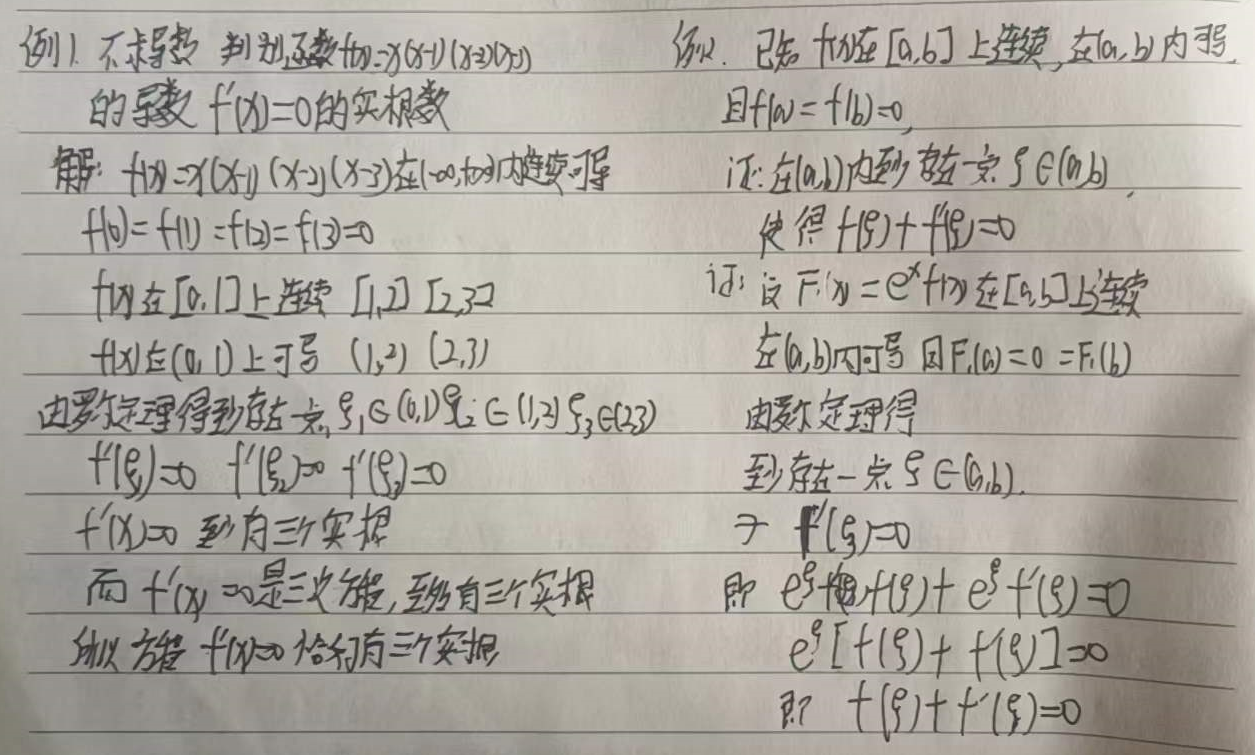 例1. 不求导数 判别函数f(x)=x(x-1)(x-2)(x-3)
的导数 f'(x)=0的实根数
解: f(x)=x(x-1)(x-2)(x-3)在(-∞,+∞)内连续可导
f(0)=f(1)=f(2)=f(3)=0
f(x)在[0,1]上连续 [1,2] [2,3]
f(x)在(0,1)上可导 (1,2) (2,3)
由罗尔定理得至少存在一点,ξ₁∈(0,1) ξ₂∈(1,2) ξ₃∈(2,3)
f'(ξ₁)=0 f'(ξ₂)=0 f'(ξ₃)=0
f'(x)=0 至少有三个实根
而 f'(x)=0是三次方程,至多有三个实根
所以 方程 f'(x)=0 恰好有三个实根
例2. 已知 f(x)在[a,b]上连续,在(a,b)内可导,
且f(a)=f(b)=0,
证:在(a,b)内至少存在一点 ξ∈(a,b),
使得 f(ξ)+f'(ξ)=0
证: 设 F(x)=eˣf(x) 在[a,b]上连续
在(a,b)内可导 因F(a)=0=F(b)
由罗尔定理得
至少存在一点 ξ∈(a,b).
F'(ξ)=0
即 e^ξ f(ξ)+e^ξ f'(ξ)=0
e^ξ[f(ξ)+f'(ξ)]=0
即 f(ξ)+f'(ξ)=0